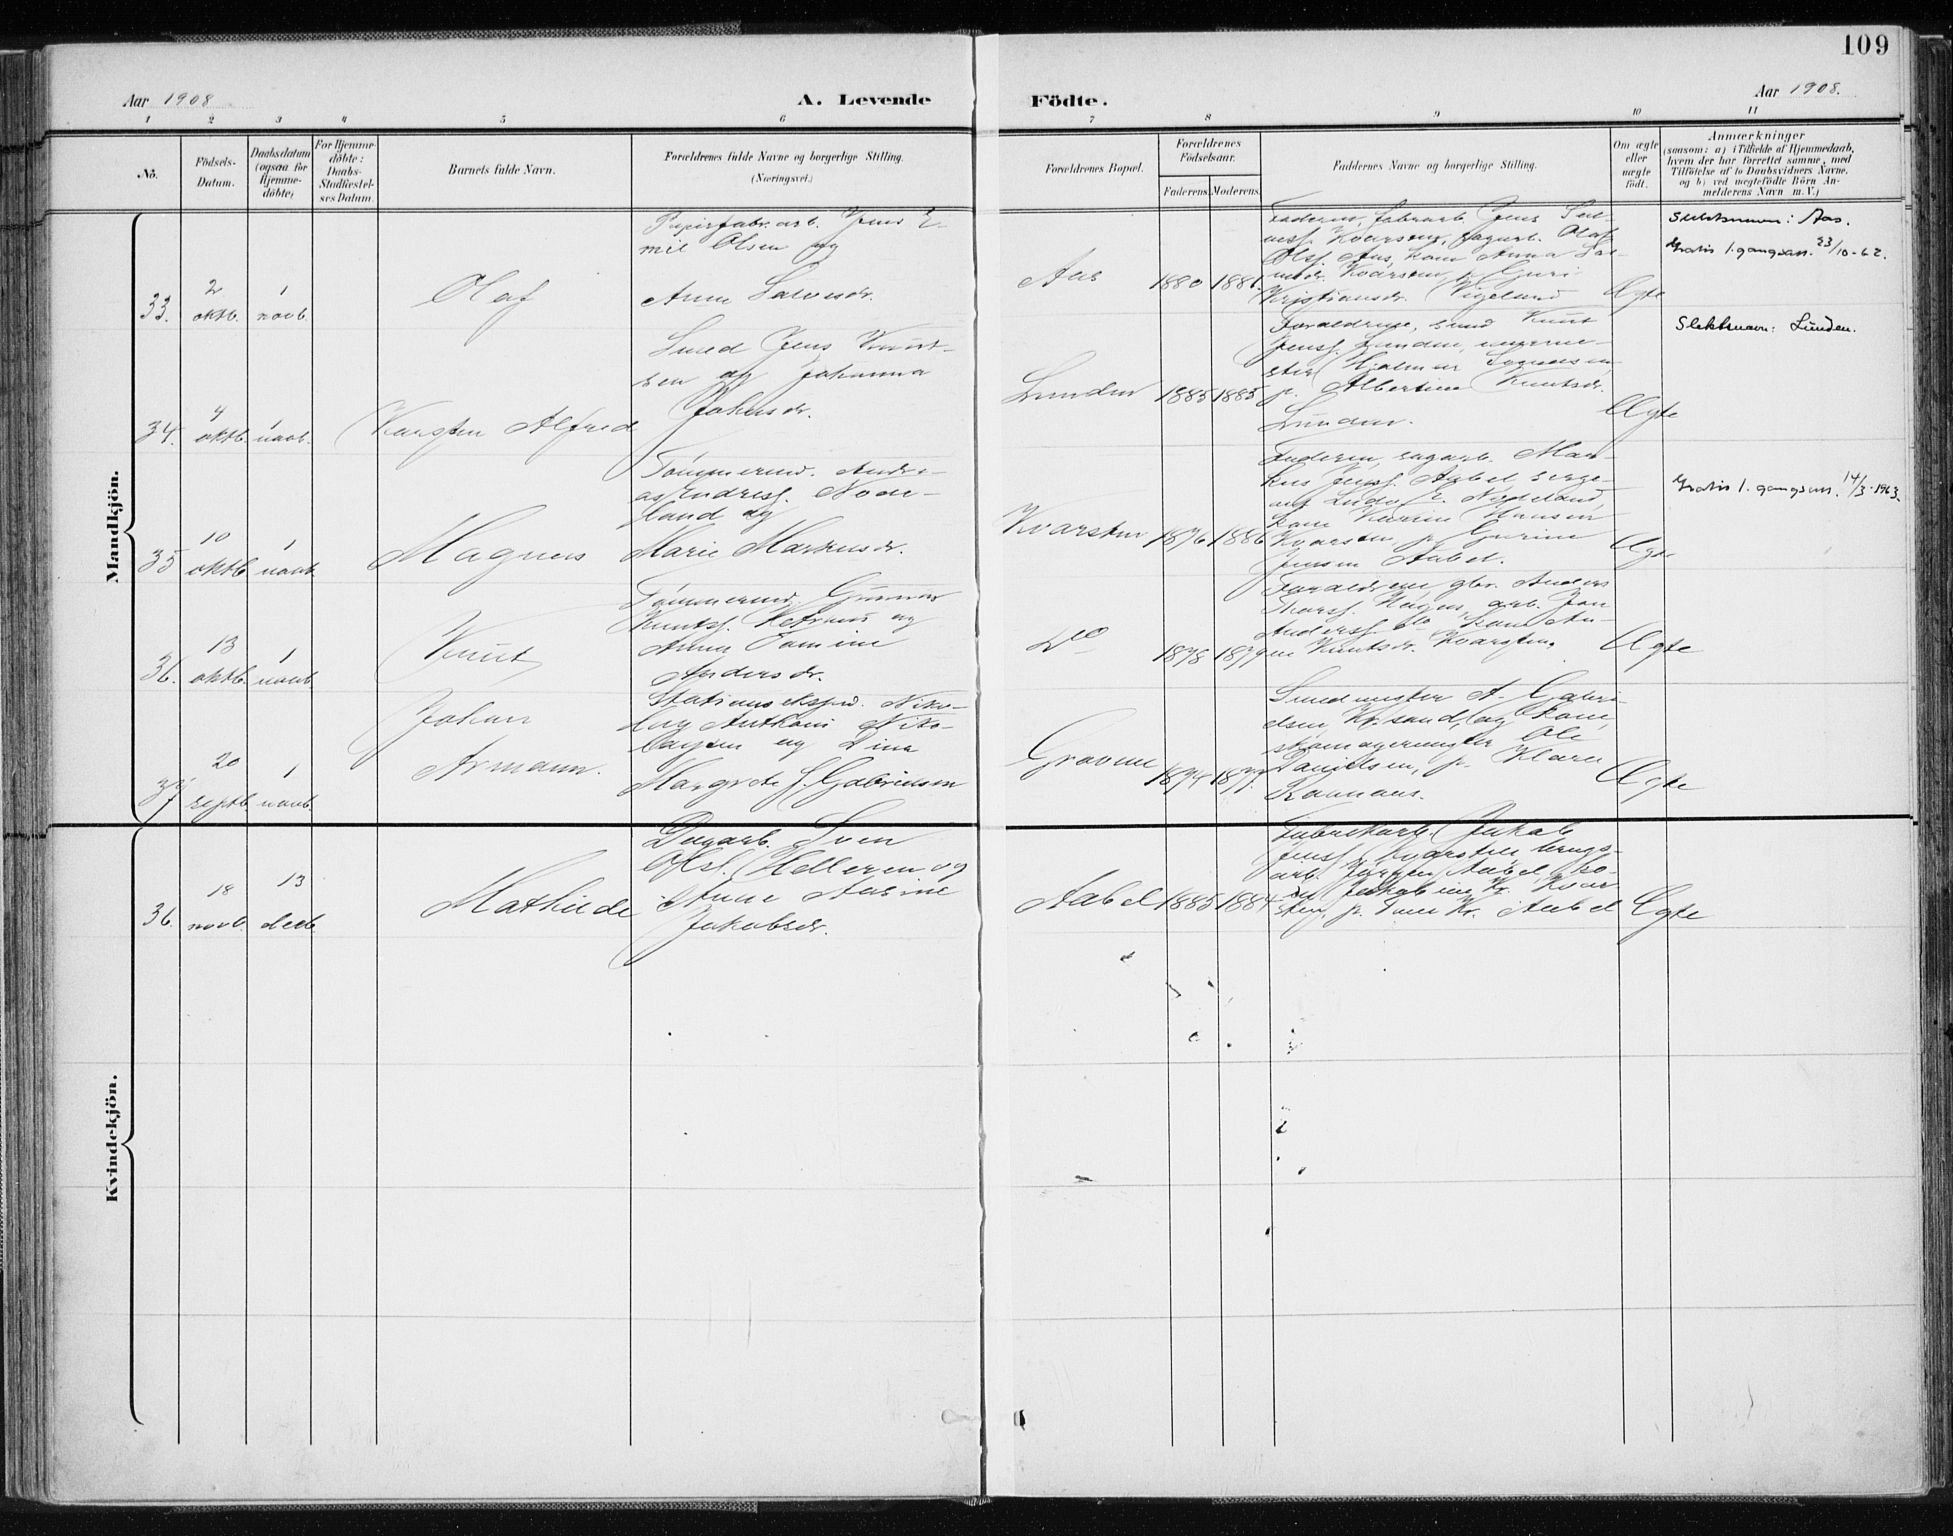 109
Aar 1908
A. Levende
Födte.
Aar 1908.
1 2 3 4 5 6 7 8 9 10 11
No.
Födsels-
Datum.
Daabsdatum
(ogsaa for
Hjemme-
döbte)
For Hjemme-
döbte:
Daabs-
Stadfæstel-
ses Datum.
Barnets fulde Navn.
Forældrenes fulde Navne og borgerlige Stilling.
(Næringsvei.)
Forældrenes Bopæl.
Forældrenes
Födselsaar.
Faderens. Moderens.
Faddernes Navne og borgerlige Stilling.
Om ægte
eller
uægte
födt.
Anmærkninger
(saasom: a) i Tilfælde af Hjemmedaab,
hvem der har forrettet samme, med
Tilföielse af to Daabsvidners Navne,
og b) ved uægtefödte Börn An-
melderens Navn m. V.)
Mandkjön.
33.
2
oktb.
1
novb.
Olaf
Papirfabr.arb. Jens E-
mil Olsen og
Anne Salvesdr.
Aas
1880 1881.
Faderen, fabrarb. Jens
Kvarsten, Olaf
Olsf. Aas, kone Anna Sal-
vesdr. Kvarsten, p. Guri
Kristiansdr. Vigeland
Ægte
Slektsnavn: Aas.
Gratis 1. gangsatt. 23/10-62.
34.
4
oktb.
1
novb.
Karsten Alfred
Smed Jens Knut-
sen og Johanna
Johnsdr.
Lunden
1885 1885
Forældrene, smed Knut
Jensf. Lunden,
Hjalmar
p. Albertine Knutsdr.
Lunden.
Ægte
Slektsnavn: Lunden.
35
10
oktb.
1
novb.
Magnus
Tømmermd. Andre-
as Endresf. Node-
land og
Marie Markusdr.
Kvarsten
1876 1886
Faderen, sagarb. Mar-
kus Jensf. Aabel,
kone Karine Hansen
Kvarsten, p. Gurine
Jensen Aabel.
Ægte
Gratis 1. gangsatt. 14/3-1963.
36.
13
oktb.
1
novb.
Knut
Tømmermd. Gunnar
Knutsf. og
Anne Tomine
Andersdr.
Do
1878 1879
Forældrene, gbr. Anders
Hagen, arb. Jon
Andersf. do, kone An-
ne Knutsdr. Kvarsten.
Ægte
37
20
septb.
1
novb.
Johan
Armann.
Stationsekspd. Niko-
lay Anthoni Niko-
laysen og Dina
Margrete J. Gabrielsen
Gravene
1874 1877.
Smedmester A. Gabri-
elsen, Kr.sand, og kone,
skomagermester Ole
Danielsen, p. Klara
Ægte
Kvindekjön.
36.
18
novb.
13
decb.
Mathilde
Dagarb. Sven
Olsf. Helleren og
Anne Aasine
Jakobsdr.
Aabel
1885 1884
Fabrikarb. Jakob
Jensf. Kvarsten, brugs-
arb. Jørgen Aabel, ko-
ne Jakobine Kr. Kvar
sten, p. Tone Kr. Aabel
Ægte